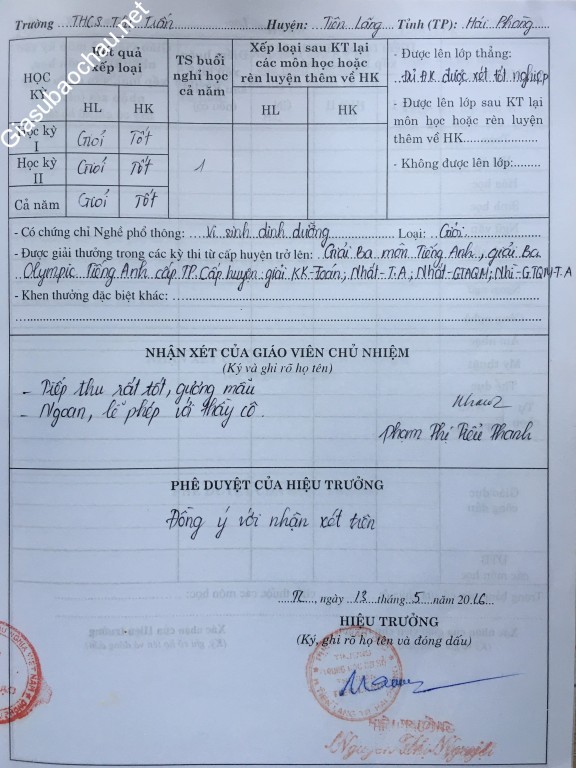 Trường THCS T Tuấn Huyện: Tiên Lãng Tỉnh (TP): Hải Phòng
Giasubaochau.net
HỌC KỲ
Kết quả xếp loại
HL HK
TS buổi nghỉ học cả năm
Xếp loại sau KT lại các môn học hoặc rèn luyện thêm về HK
HL HK
- Được lên lớp thẳng:
Đủ ĐK được xét tốt nghiệp
- Được lên lớp sau KT lại
môn học hoặc rèn luyện
thêm về HK
- Không được lên lớp:
Học kỳ I Giỏi Tốt
Học kỳ II Giỏi Tốt 1
Cả năm Giỏi Tốt
- Có chứng chỉ Nghề phổ thông: Vi sinh dinh dưỡng Loại: Giỏi
- Được giải thưởng trong các kỳ thi từ cấp huyện trở lên: Giải Ba môn Tiếng Anh, giải Ba
Olympic Tiếng Anh cấp TP. Cấp huyện giải KK-Toán; Nhất-T.A; Nhất-GTAQM; Nhì-GTQM-T.A
- Khen thưởng đặc biệt khác:
NHẬN XÉT CỦA GIÁO VIÊN CHỦ NHIỆM
(Ký và ghi rõ họ tên)
- Tiếp thu rất tốt, gương mẫu
- Ngoan, lễ phép với thầy cô.
Phạm Thị Tiểu Thanh
PHÊ DUYỆT CỦA HIỆU TRƯỞNG
Đồng ý với nhận xét trên
TL, ngày 13 tháng 5 năm 2016
HIỆU TRƯỞNG
(Ký, ghi rõ họ tên và đóng dấu)
HIỆU TRƯỞNG
Nguyễn Thị